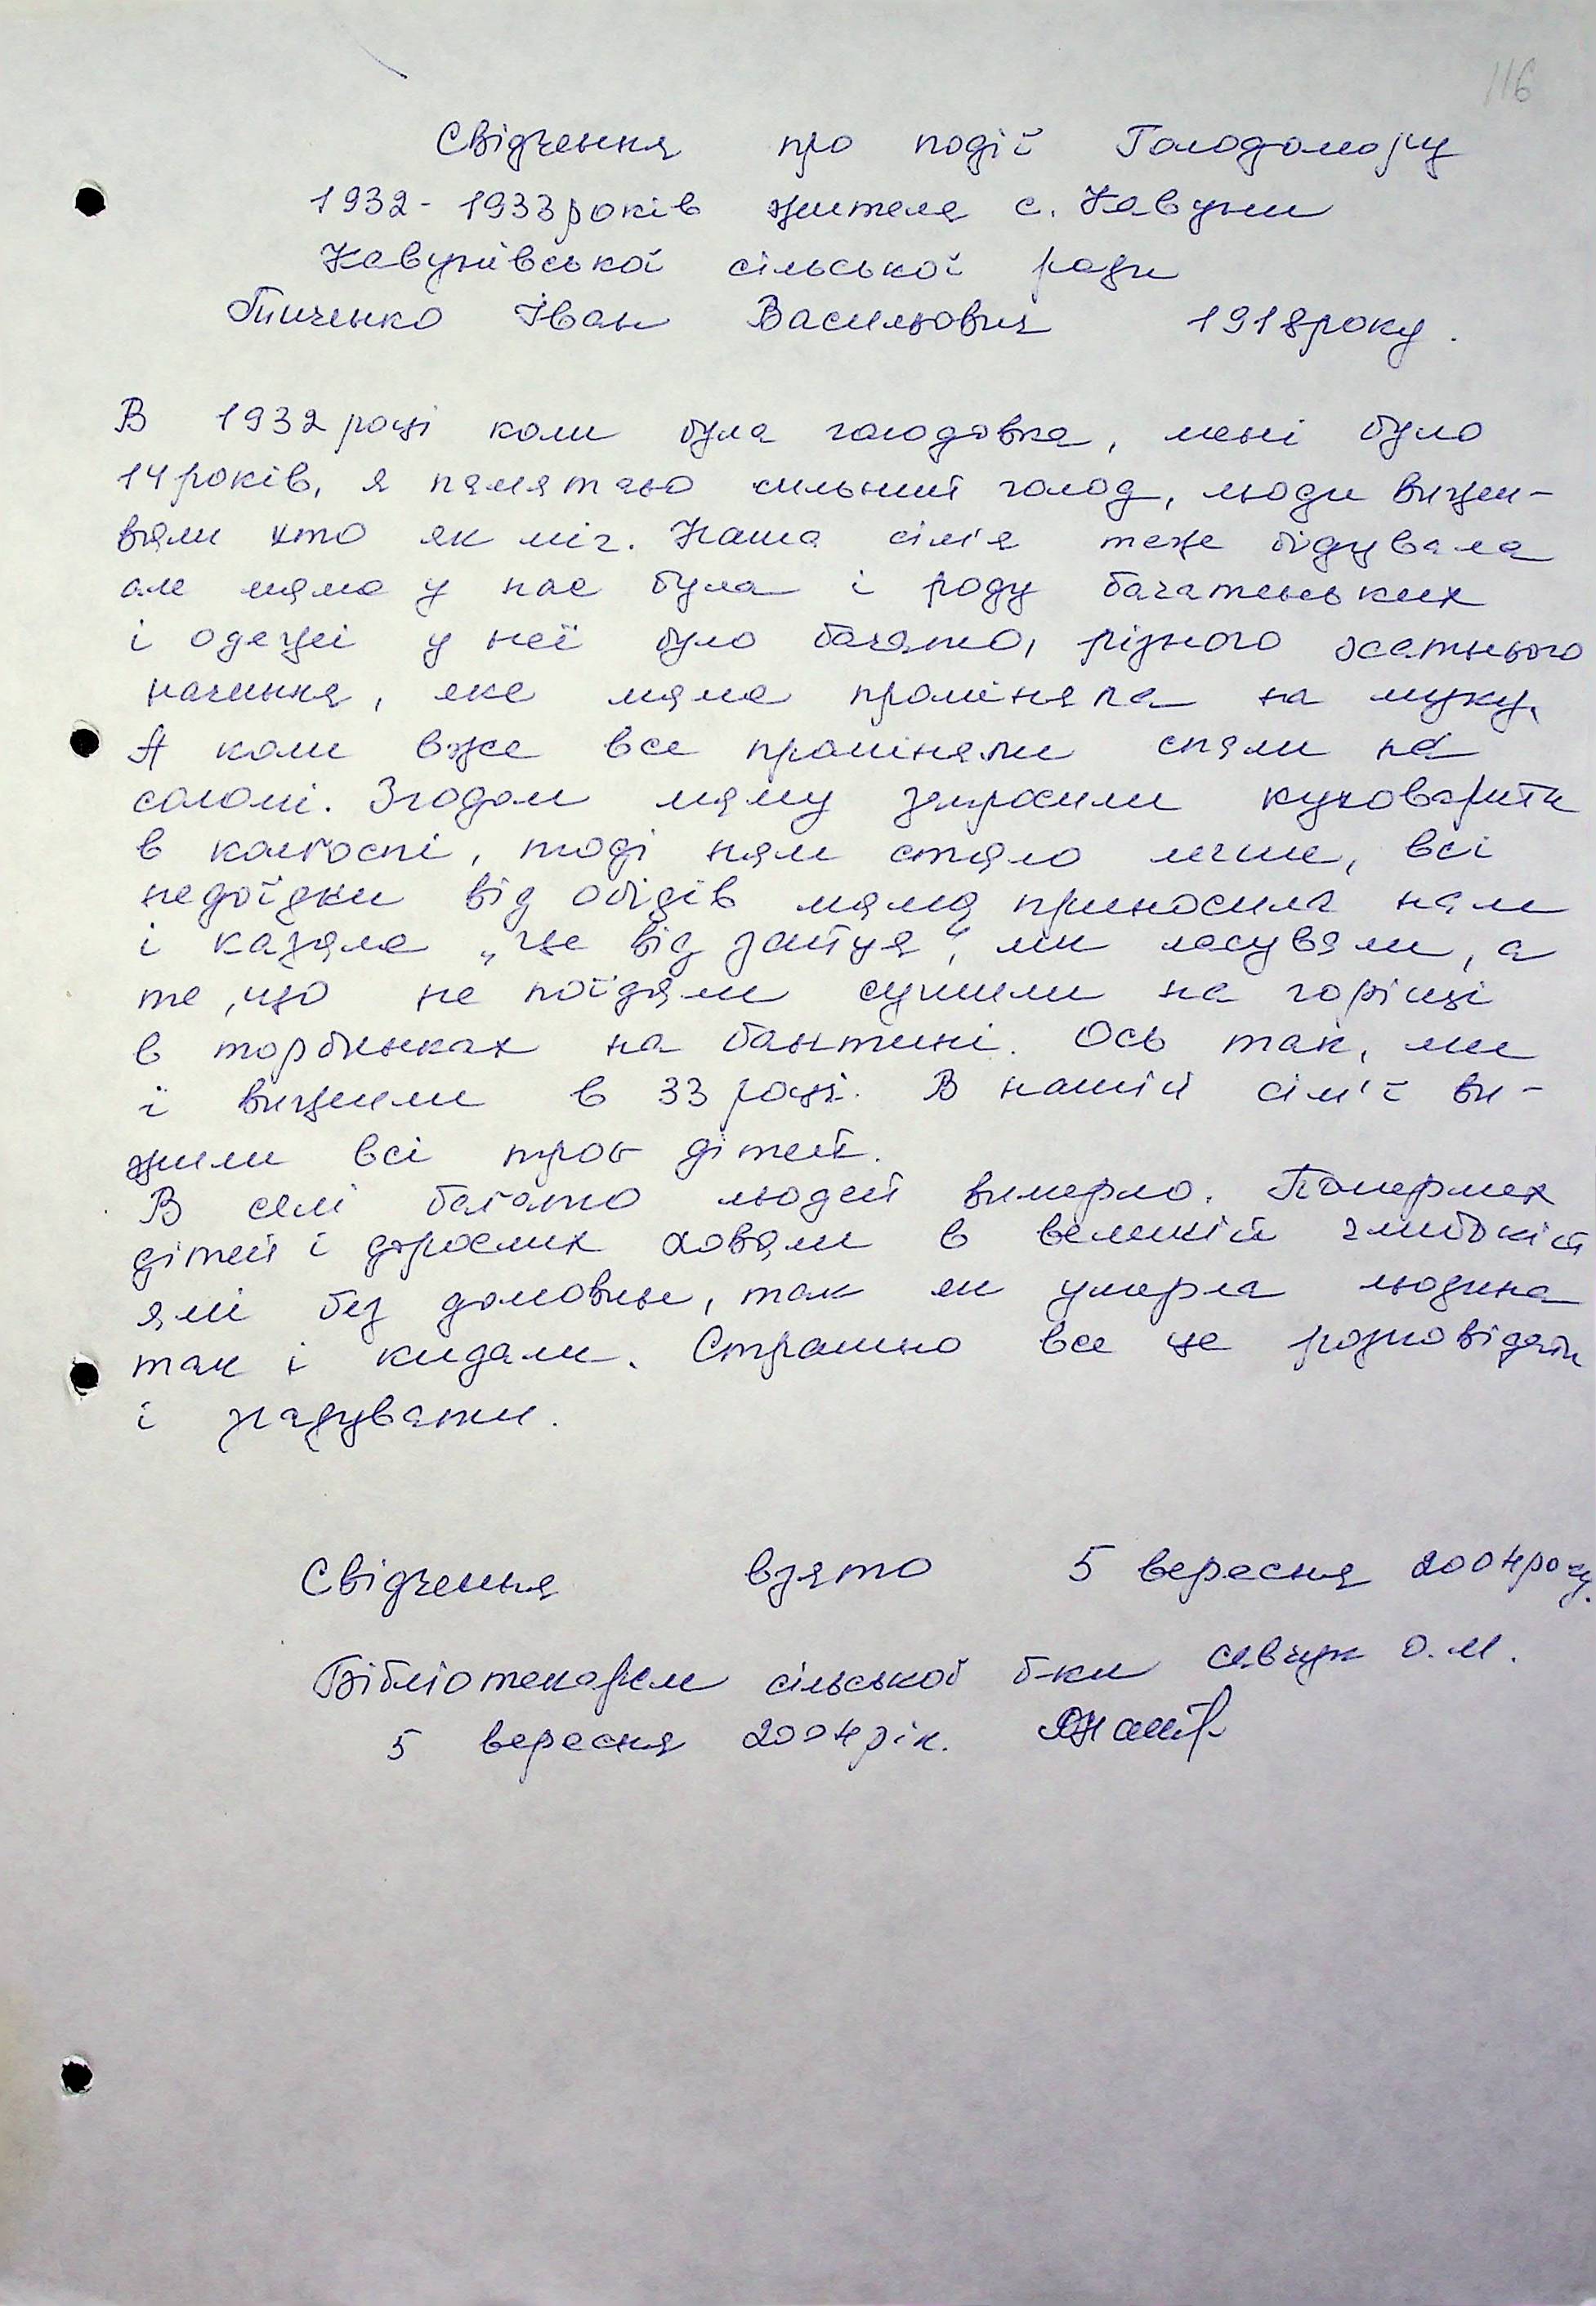 116
Свідчення про події Голодомору
1932-1933 років жителя с. Кавуни
Кавунівської сільської ради
Іван Васильович 1918 року.
В 1932 році коли була голодовка, мені було
14 років, я памятаю сильний голод, люди вижи-
вали хто як міг. Наша сім'я теж бідувала
але мама у нас була і роду багатеньких
і одежі у неї було багато, різного хатнього
начиння, яке мама проміняла на муку.
А коли вже все проміняли спали на
соломі. Згодом маму запросили куховарити
в колгоспі, тоді нам стало легше, всі
недоїдки від обідів мама приносила нам
і казала „це від зайця", ми ласували, а
те, що не поїдали сушили на горіщі
в торбинках на бантині. Ось так, ми
і вижили в 33 році. В нашій сім'ї ви-
жили всі троє дітей.
В селі багато людей вимерло. Померлих
дітей і дорослих ховали в великій глибокій
ямі без домовин, так як умерла людина
так і кидали. Страшно все це розповідати
і згадувати.
Свідчення взято 5 вересня 2004 року.
Бібліотекарем сільської б-ки Савчук О.М.
5 вересня 2004 рік.